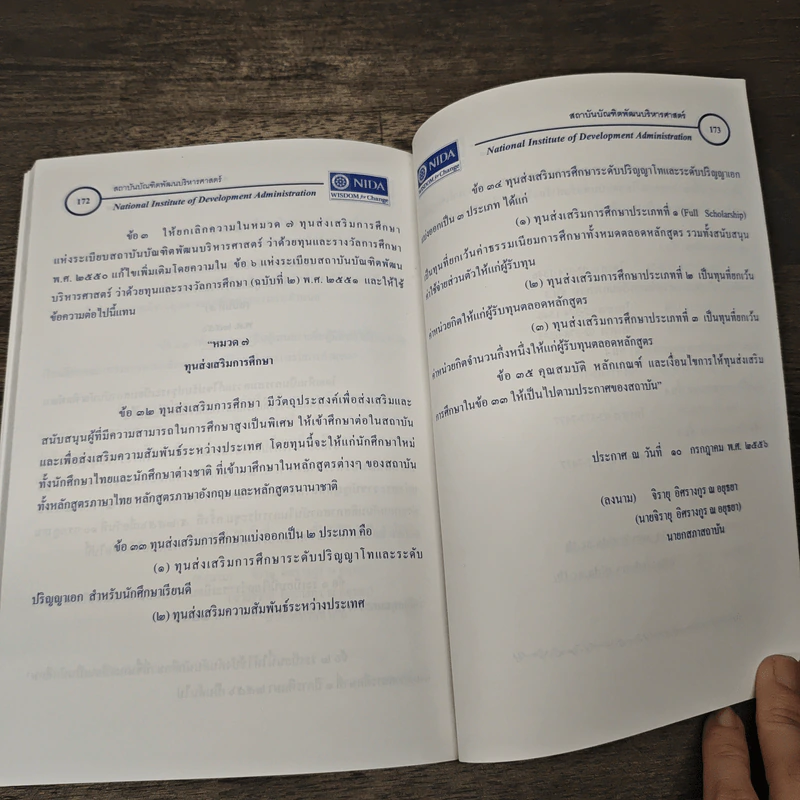 สถาบันบัณฑิตพัฒนบริหารศาสตร์
172
National Institute of Development Administration
NIDA
WISDOM for Change
ข้อ ๓ ให้ยกเลิกความในหมวด ๗ ทุนส่งเสริมการศึกษา
แห่งระเบียบสถาบันบัณฑิตพัฒนบริหารศาสตร์ ว่าด้วยทุนและรางวัลการศึกษา
พ.ศ. ๒๕๕๐ แก้ไขเพิ่มเติมโดยความใน ข้อ ๖ แห่งระเบียบสถาบันบัณฑิตพัฒน
บริหารศาสตร์ ว่าด้วยทุนและรางวัลการศึกษา (ฉบับที่ ๒) พ.ศ. ๒๕๕๑ และให้ใช้
ข้อความต่อไปนี้แทน
"หมวด ๗
ทุนส่งเสริมการศึกษา
ข้อ ๓๒ ทุนส่งเสริมการศึกษา มีวัตถุประสงค์เพื่อส่งเสริมและ
สนับสนุนผู้ที่มีความสามารถในการศึกษาสูงเป็นพิเศษ ให้เข้าศึกษาต่อในสถาบัน
และเพื่อส่งเสริมความสัมพันธ์ระหว่างประเทศ โดยทุนนี้จะให้แก่นักศึกษาใหม่
ทั้งนักศึกษาไทยและนักศึกษาต่างชาติ ที่เข้ามาศึกษาในหลักสูตรต่างๆ ของสถาบัน
ทั้งหลักสูตรภาษาไทย หลักสูตรภาษาอังกฤษ และหลักสูตรนานาชาติ
ข้อ ๓๓ ทุนส่งเสริมการศึกษาแบ่งออกเป็น ๒ ประเภท คือ
(๑) ทุนส่งเสริมการศึกษาระดับปริญญาโทและระดับ
ปริญญาเอก สำหรับนักศึกษาเรียนดี
(๒) ทุนส่งเสริมความสัมพันธ์ระหว่างประเทศ
สถาบันบัณฑิตพัฒนบริหารศาสตร์
National Institute of Development Administration
173
NIDA
WISDOM for Change
ข้อ ๓๔ ทุนส่งเสริมการศึกษาระดับปริญญาโทและระดับปริญญาเอก
แบ่งออกเป็น ๓ ประเภท ได้แก่
(๑) ทุนส่งเสริมการศึกษาประเภทที่ ๑ (Full Scholarship)
เป็นทุนที่ยกเว้นค่าธรรมเนียมการศึกษาทั้งหมดตลอดหลักสูตร รวมทั้งสนับสนุน
ค่าใช้จ่ายส่วนตัวให้แก่ผู้รับทุน
(๒) ทุนส่งเสริมการศึกษาประเภทที่ ๒ เป็นทุนที่ยกเว้น
ค่าหน่วยกิตให้แก่ผู้รับทุนตลอดหลักสูตร
(๓) ทุนส่งเสริมการศึกษาประเภทที่ ๓ เป็นทุนที่ยกเว้น
ค่าหน่วยกิตจำนวนกึ่งหนึ่งให้แก่ผู้รับทุนตลอดหลักสูตร
ข้อ ๓๕ คุณสมบัติ หลักเกณฑ์ และเงื่อนไขการให้ทุนส่งเสริม
การศึกษาในข้อ ๓๓ ให้เป็นไปตามประกาศของสถาบัน"
ประกาศ ณ วันที่ ๑๐ กรกฎาคม พ.ศ. ๒๕๕๖
(ลงนาม) จิรายุ อิศรางกูร ณ อยุธยา
(นายจิรายุ อิศรางกูร ณ อยุธยา)
นายกสภาสถาบัน